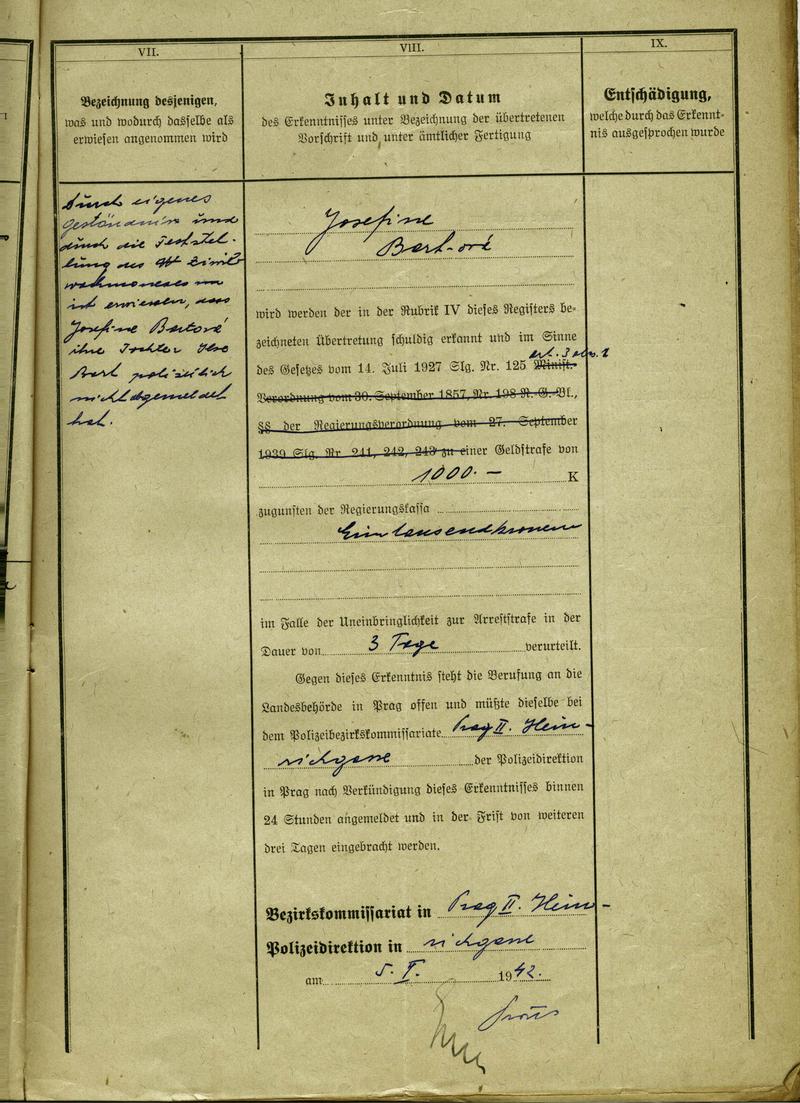 VII.
Bezeichnung desjenigen,
was und wodurch dasselbe als
erwiesen angenommen wird
durch eigenes
Geständnis und
durch die Feststel-
lung des
ist erwiesen, dass
Josefine
ihre Tochter
polizeilich
nicht abgemeldet
hat.
VIII.
Inhalt und Datum
des Erkenntnisses unter Bezeichnung der übertretenen
Vorschrift und unter ämtlicher Fertigung
Josefine
wird werden der in der Rubrik IV dieses Registers be-
zeichneten Übertretung schuldig erkannt und im Sinne
des Gesetzes vom 14. Juli 1927 Slg. Nr. 125 Minist.-
Verordnung vom 30. September 1857, Nr. 198 R. G. Bl.,
§§ der Regierungsverordnung vom 27. September
1939 Slg. Nr. 241, 242, 243 zu einer Geldstrafe von
1000.— K
zugunsten der Regierungskassa
Eintausendkronen
im Falle der Uneinbringlichkeit zur Arreststrafe in der
Dauer von 3 Tage verurteilt.
Gegen dieses Erkenntnis steht die Berufung an die
Landesbehörde in Prag offen und müßte dieselbe bei
dem Polizeibezirkskommissariate Prag II. Hein-
richgasse der Polizeidirektion
in Prag nach Verkündigung dieses Erkenntnisses binnen
24 Stunden angemeldet und in der Frist von weiteren
drei Tagen eingebracht werden.
Bezirkskommissariat in Prag II. Hein-
Polizeidirektion in richgasse
am 5. I. 1942.
IX.
Entschädigung,
welche durch das Erkennt-
nis ausgesprochen wurde